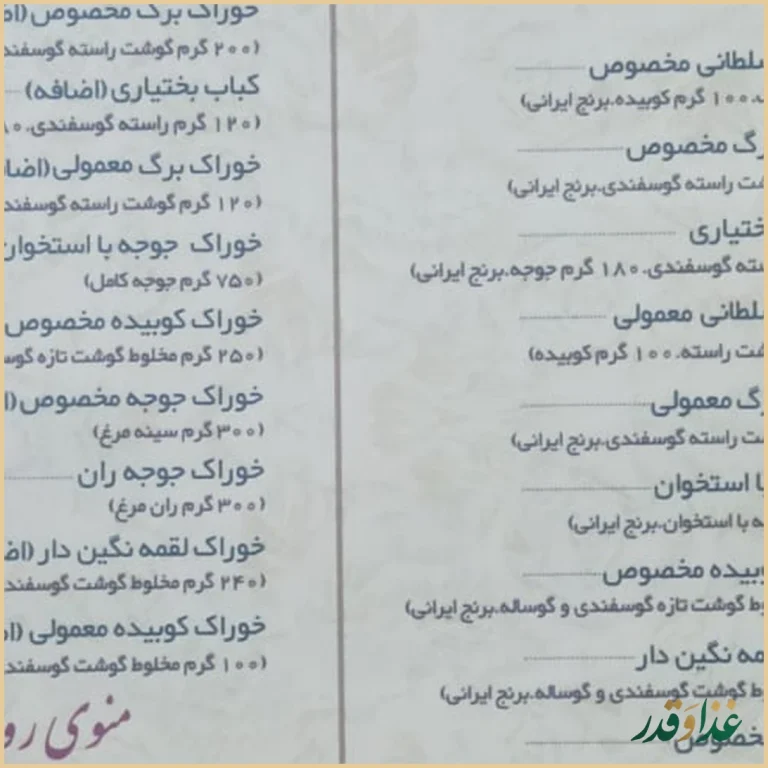 مخصوص
۱۰۰ گرم کوبیده.برنج ایرانی)
مخصوص
راسته گوسفندی.برنج ایرانی)
گوسفندی. ۱۸۰ گرم جوجه.برنج ایرانی)
معمولی
راسته. ۱۰۰ گرم کوبیده)
معمولی
راسته گوسفندی.برنج ایرانی)
استخوان
با استخوان.برنج ایرانی)
مخصوص
گوشت تازه گوسفندی و گوساله.برنج ایرانی)
نگین دار
گوشت گوسفندی و گوساله.برنج ایرانی)
خوراک برگ مخصوص
(۲۰۰ گرم گوشت راسته گوسفند
کباب بختیاری (اضافه)
(۱۲۰ گرم راسته گوسفندی.
خوراک برگ معمولی
(۱۲۰ گرم گوشت راسته گوسفند
خوراک جوجه با استخوان
(۷۵۰ گرم جوجه کامل)
خوراک کوبیده مخصوص
(۲۵۰ گرم مخلوط گوشت تازه
خوراک جوجه مخصوص
(۳۰۰ گرم سینه مرغ)
خوراک جوجه ران
(۳۰۰ گرم ران مرغ)
خوراک لقمه نگین دار
(۲۴۰ گرم مخلوط گوشت گوسفند
خوراک کوبیده معمولی
(۱۰۰ گرم مخلوط گوشت گوسفند
منوی
غذا و قدر